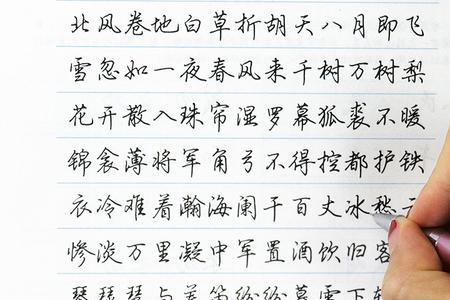 北风卷地白草折胡天八月即飞
雪忽如一夜春风来千树万树梨
花开散入珠帘湿罗幕狐裘不暖
锦衾薄将军角弓不得控都护铁
衣冷难着瀚海阑干百丈冰愁
惨淡万里凝中军置酒饮归客
琴琵琶与羌笛纷纷暮雪下